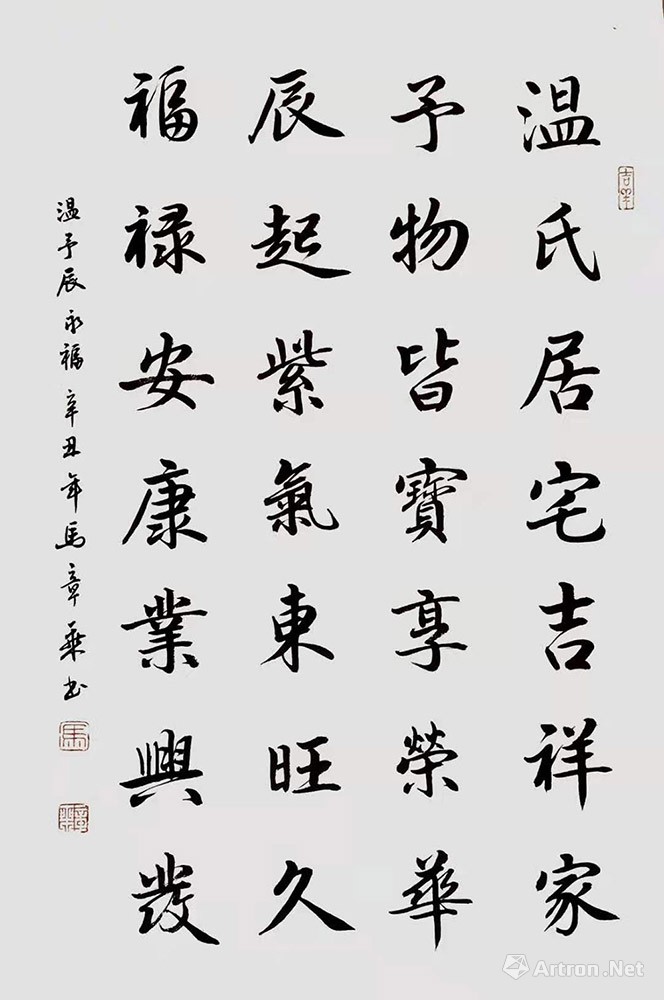 温氏居宅吉祥家
予物皆寶享榮華
辰起紫氣東旺久
福禄安康業興發
温予辰永福辛丑年馬章乘书
吉羊
馬
Artron.Net